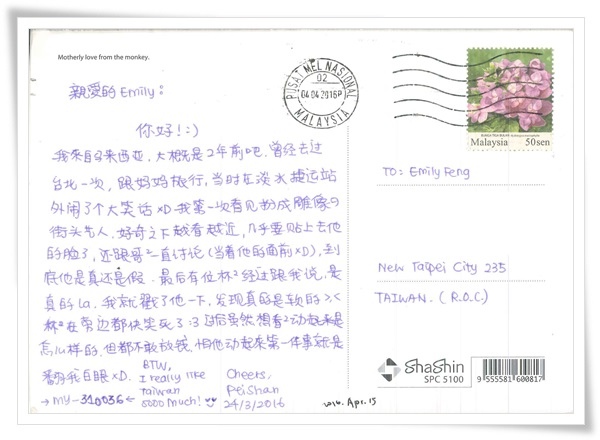 Motherly love from the monkey.
PUSAT MEL NASIONAL
02
04 04 2016P
MALAYSIA
Malaysia 50sen
親愛的 Emily :
你好! :)
我来自马来西亚, 大概是2年前吧, 曾经去过
台北一次, 跟妈妈旅行, 当时在淡水捷运站
外闹了个大笑话 xD 我第一次看见扮成雕像的
街头艺人, 好奇之下越看越近, 几乎要贴上去他
的脸了, 还跟哥²一直讨论 (当着他的面前 xD), 到
底他是真还是假. 最后有位杯²经过跟我说, 是
真的 la. 我就戳了他一下, 发现真的是软的 >.<
杯²在旁边都快笑死了 :3 过后虽然想看²动起来是
怎么样的, 但都不敢放钱, 怕他动起来第一件事就是
翻我白眼 xD.
→ MY-310036 ←
BTW,
I really like
Taiwan
sooo Much!
Cheers,
PeiShan
24/3/2016
2016. Apr. 15
TO: Emily Feng
New Taipei City 235
TAIWAN. (R.O.C.)
ShaShin
SPC 5100
9 555581 600817